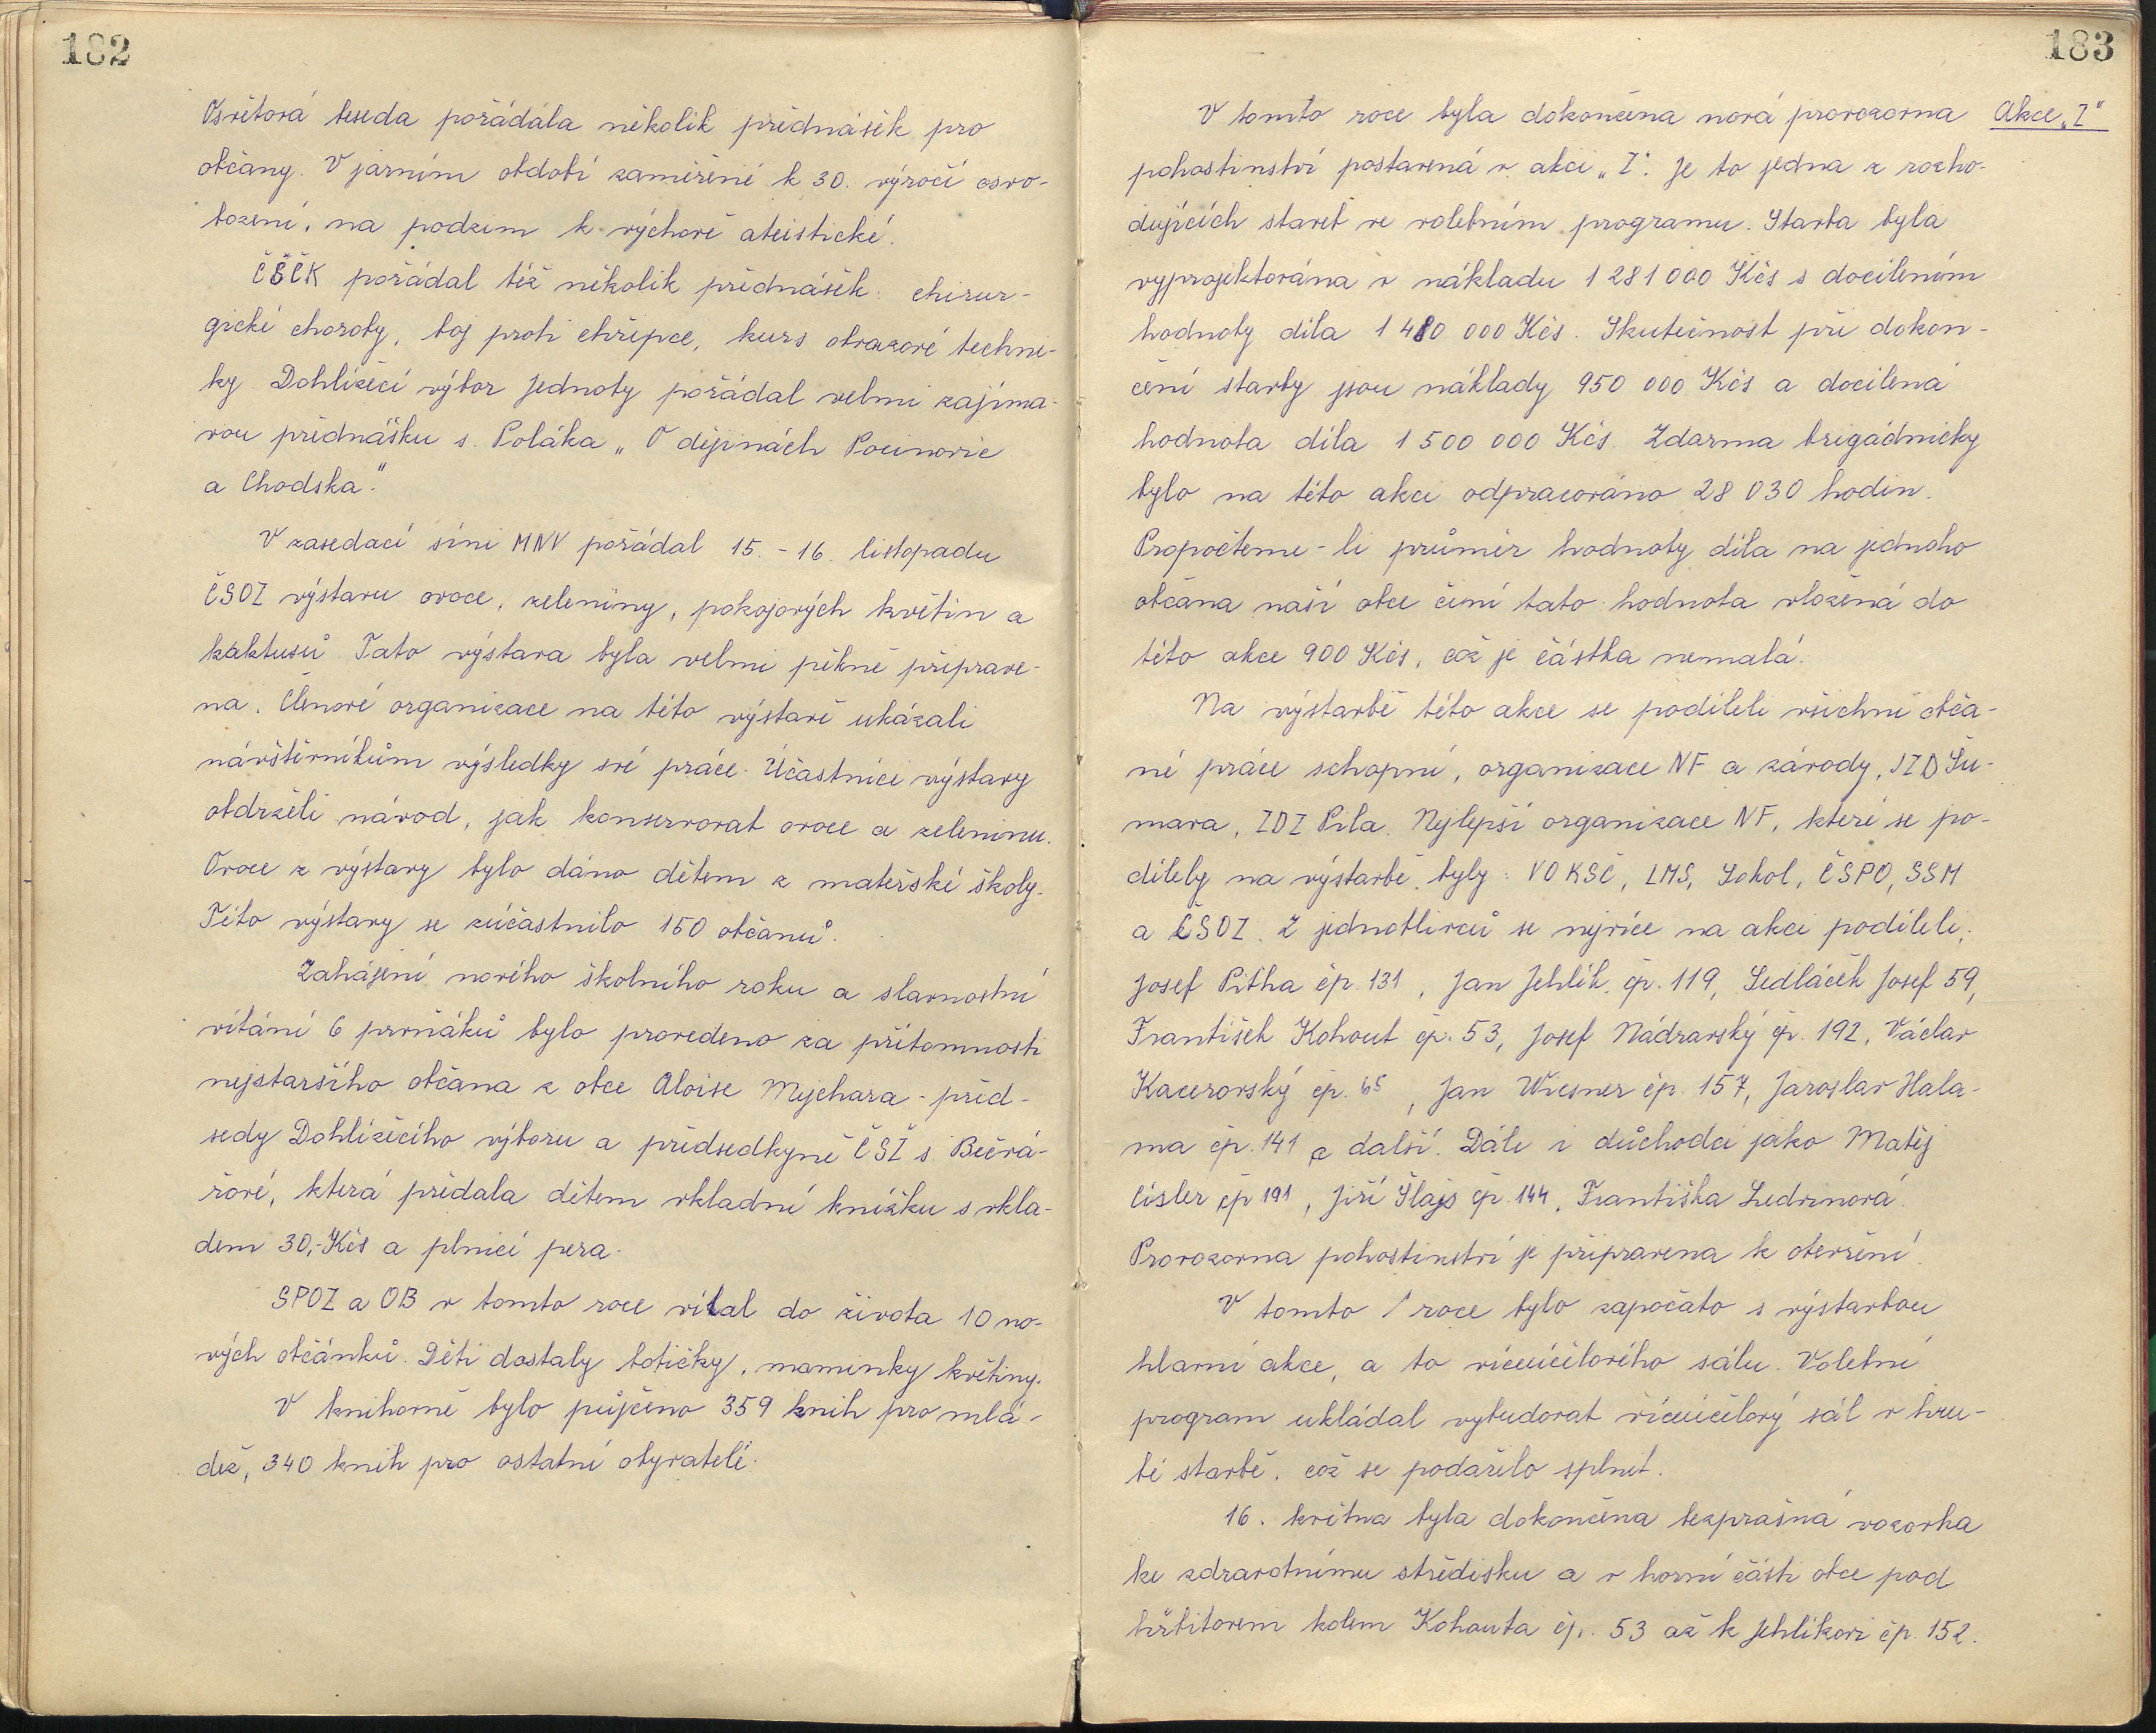 182
Osvětová beseda pořádala několik přednášek pro
občany. V jarním období zaměřené k 30. výročí osvo-
bození, na podzim k výchově ateistické.
ČSČK pořádal též několik přednášek: chirur-
gické choroby, boj proti chřipce, kurs obvazové techni-
ky. Dohlížecí výbor Jednoty pořádal velmi zajíma-
vou přednášku s. Poláka „O dějinách Pocinovic
a Chodska."
V zasedací síni MNV pořádal 15. - 16. listopadu
ČSOZ výstavu ovoce, zeleniny, pokojových květin a
kaktusů. Tato výstava byla velmi pěkně připrave-
na. Členové organizace na této výstavě ukázali
návštěvníkům výsledky své práce. Účastníce výstavy
obdrželi návod, jak konservovat ovoce a zeleninu.
Ovoce z výstavy bylo dáno dětem z mateřské školy.
Této výstavy se zúčastnilo 150 občanů.
Zahájení nového školního roku a slavnostní
vítání 6 prvňáků bylo provedeno za přítomnosti
nejstaršího občana z obce Aloise Mychara - před-
sedy Dohlížecího výboru a předsedkyně ČSŽ s. Bečvá-
řové, která předala dětem vkladní knížku s vkla-
dem 30,- Kčs a plnící pera.
SPOZ a OB v tomto roce vítal do života 10 no-
vých občánků. Děti dostaly botičky, maminky květiny.
V knihovně bylo půjčeno 359 knih pro mlá-
dež, 340 knih pro ostatní obyvatelé.
183
Akce „Z"
V tomto roce byla dokončena nová provozovna
pohostinství postavená v akci „Z". Je to jedna z rozho-
dujících staveb ve volebním programu. Stavba byla
vyprojektována v nákladu 1 281 000 Kčs s docílením
hodnoty díla 1 480 000 Kčs. Skutečnost při dokon-
čení stavby jsou náklady 950 000 Kčs a docílená
hodnota díla 1 500 000 Kčs. Zdarma brigádnicky
bylo na této akci odpracováno 28 030 hodin.
Propočteme-li průměr hodnoty díla na jednoho
občana naší obce činí tato hodnota vložená do
této akce 900 Kčs, což je částka nemalá.
Na výstavbě této akce se podíleli všichni obča-
né práce schopní, organizace NF a závody, JZD Šu-
mava, ZDZ Pila. Nejlepší organizace NF, které se po-
dílely na výstavbě byly: VO KSČ, LMS, Sokol, ČSPO, SSM
a ČSOZ. Z jednotlivců se nejvíce na akci podíleli:
Josef Pitha čp. 131, Jan Jehlík čp. 119, Sedláček Josef 59,
František Kohout čp. 53, Josef Nádravský čp. 192, Václav
Kacerovský čp. 65, Jan Wiesner čp. 157, Jaroslav Hala-
ma čp. 141 a další. Dále i důchodci jako Matěj
Cisler čp 191, Jiří Šlajs čp. 144, Františka Ledvinová.
Provozovna pohostinství je připravena k otevření.
V tomto roce bylo započato s výstavbou
hlavní akce, a to víceúčelového sálu. Volební
program ukládal vybudovat víceúčelový sál v hru-
bé stavbě, což se podařilo splnit.
16. května byla dokončena bezprašná vozovka
ke zdravotnímu středisku a v horní části obce pod
hřbitovem kolem Kohouta čp. 53 až k Jehlíkovi čp. 152.